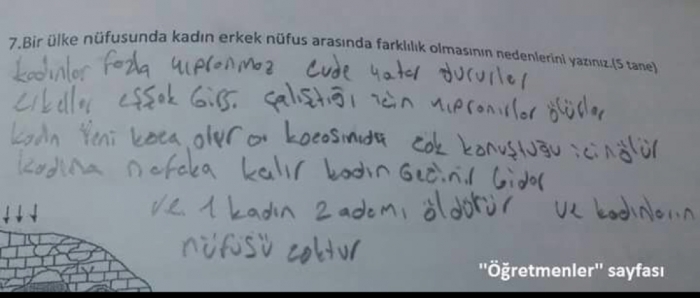 7.Bir ülke nüfusunda kadın erkek nüfus arasında farklılık olmasının nedenlerini yazınız.(5 tane)
kadınlar fazla yıpranmaz evde yatar dururlar
erkekler eşşek gibi çalıştığı için yıpranırlar ölürler
kadın yeni koca alır o kocasınıda çok konuştuğu için ölür
kadına nafaka kalır kadın geçinir gider
ve 1 kadın 2 adamı öldürür ve kadınların
nüfüsü çoktur
"Öğretmenler" sayfası